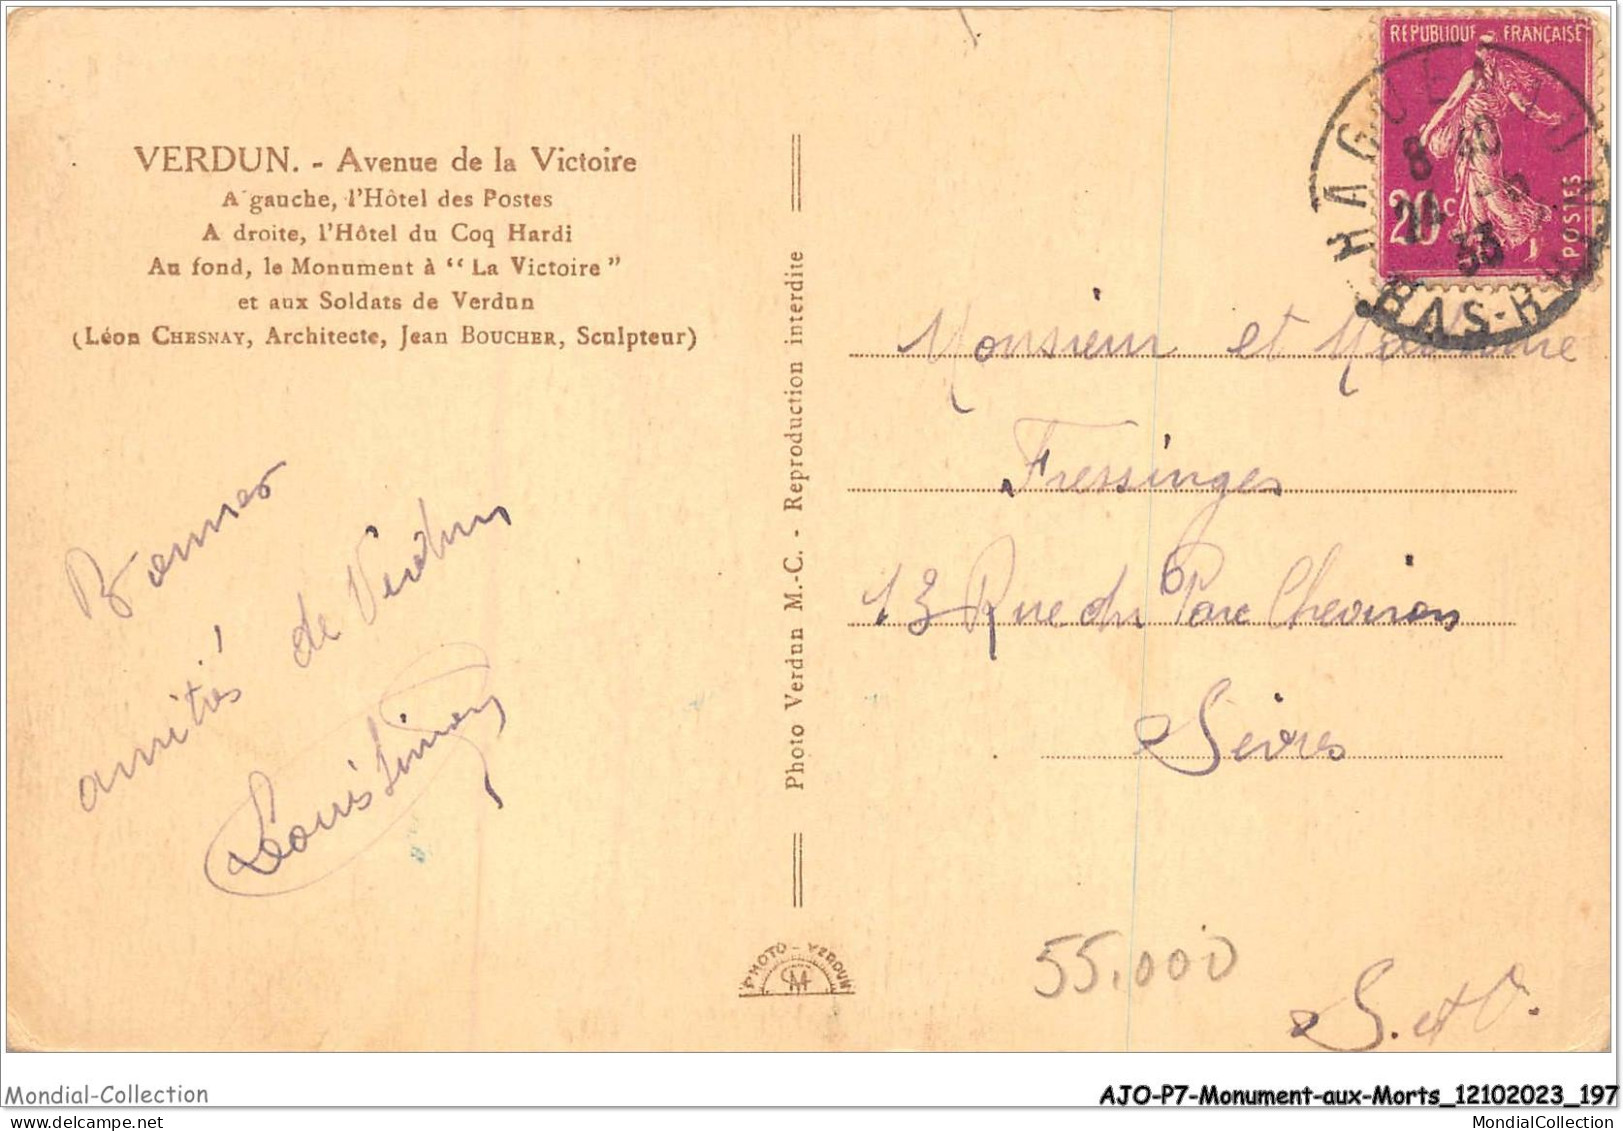 VERDUN. - Avenue de la Victoire
A gauche, l'Hôtel des Postes
A droite, l'Hôtel du Coq Hardi
Au fond, le Monument à “ La Victoire ”
et aux Soldats de Verdun
(Léon CHESNAY, Architecte, Jean BOUCHER, Sculpteur)
Bonnes
amitiés de Verdun
Louis Simon
Photo Verdun M.-C. - Reproduction interdite
PHOTO - VERDUN
CM
REPUBLIQUE FRANÇAISE
20c
POSTES
HAGUENAU
8 40
33
BAS-RHIN
Monsieur et Madame
Fressinges
13 Rue du Parc Cheviron
Sèvres
55.000
S. et O.
Mondial-Collection
AJO-P7-Monument-aux-Morts_12102023_197
MondialCollection